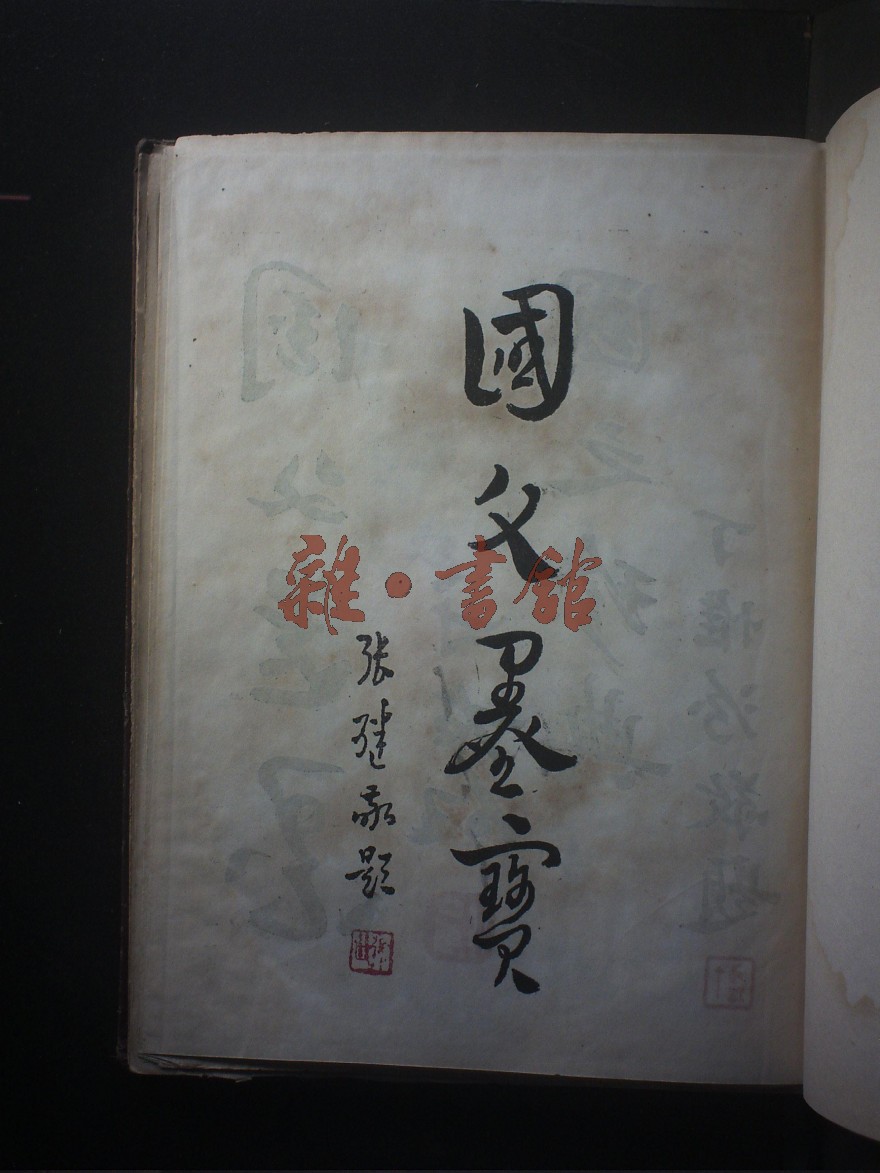 國父墨寶
張繼敬題
雜·書館